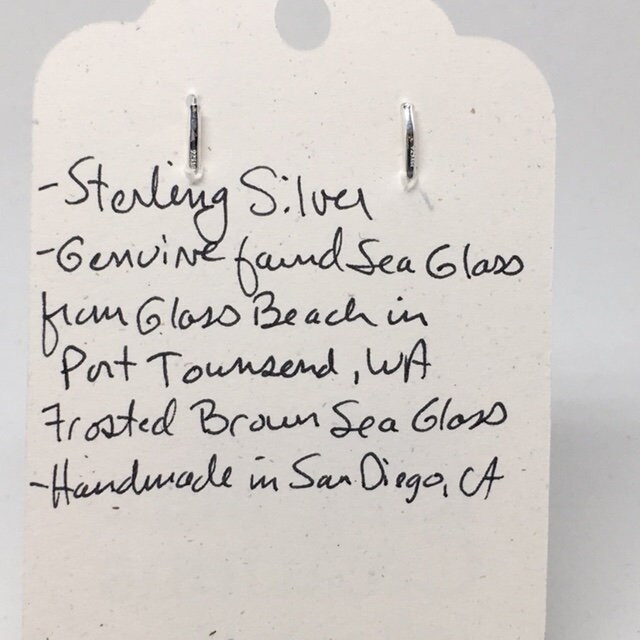 -Sterling Silver
-Genuine found Sea Glass
from Glass Beach in
Port Townsend, WA
Frosted Brown Sea Glass
-Handmade in San Diego, CA